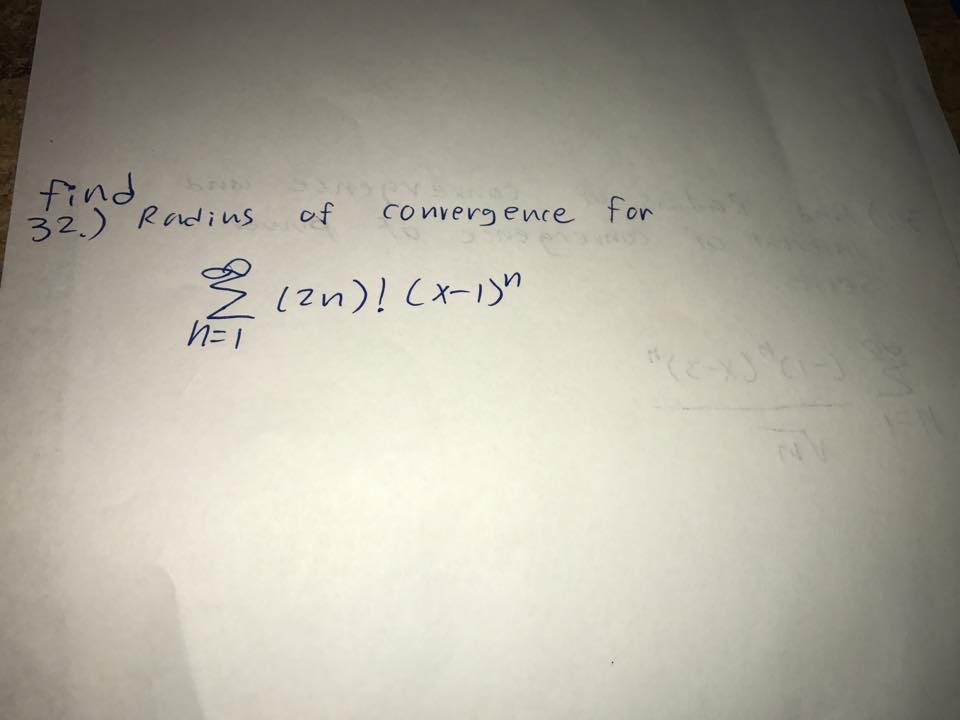 find
32.) Radius of convergence for
∞
Σ (2n)! (x-1)ⁿ
n=1